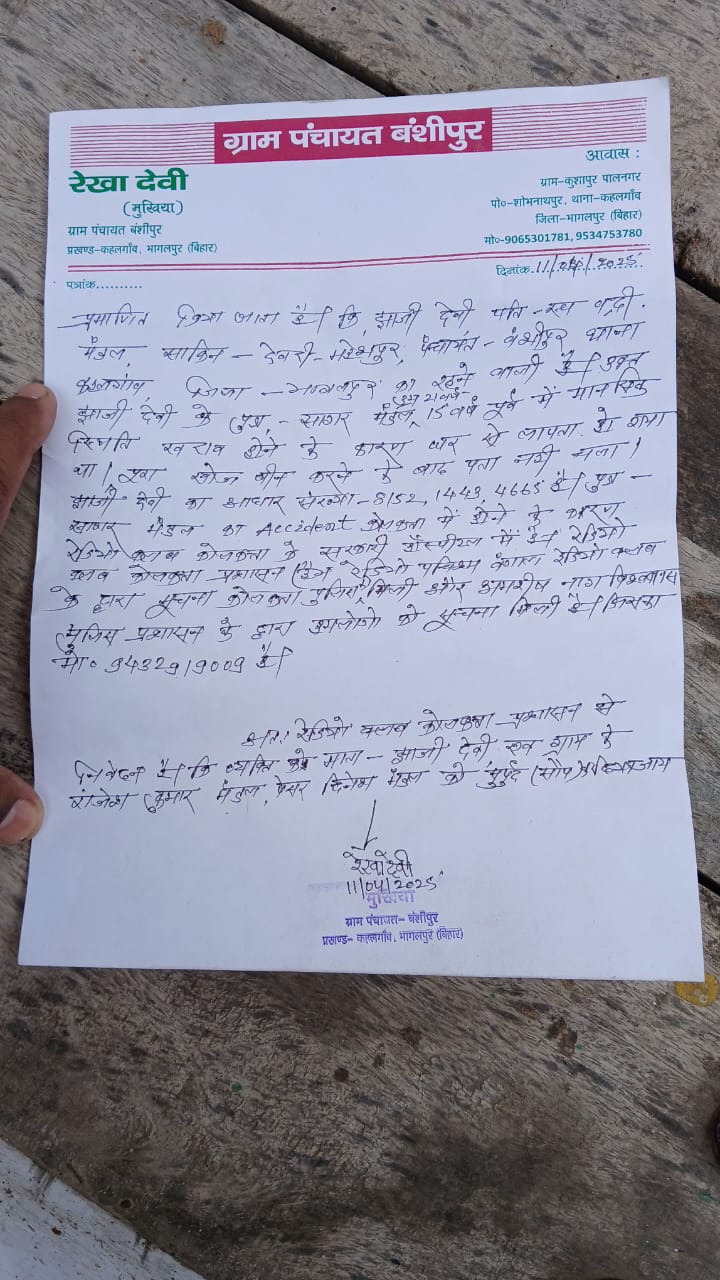 ग्राम पंचायत बंशीपुर
रेखा देवी
(मुखिया)
ग्राम पंचायत बंशीपुर
प्रखण्ड-कहलगाँव, भागलपुर (बिहार)
आवास :
ग्राम-कुशापुर पालनगर
पो०-शोभनाथपुर, थाना-कहलगाँव
जिला-भागलपुर (बिहार)
मो०-9065301781, 9534753780
पत्रांक..........
दिनांक 11/04/2025
प्रमाणित किया जाता है कि झाजी देवी पति - स्व०
मंडल साकिन - देवरी - महेशपुर, पंचायत - बंशीपुर थाना
कहलगांव, जिला - भागलपुर का रहने वाली है। उक्त
झाजी देवी के पुत्र - सागर मंडल, 15 वर्ष पूर्व में मानसिक
स्थिति खराब होने के कारण घर से लापता हो गया
था। खोज बीन करने के बाद पता नही चला।
झाजी देवी का आधार संख्या - 8152, 1443, 4665 है। पुत्र -
सागर मंडल का Accident कोलकता में होने के कारण
रेडियो क्लब कोलकत्ता के सरकारी हॉस्पीटल में है। रेडियो
क्लब कोलकत्ता प्रशासन रेडियो पश्चिम बंगाल रेडियो क्लब
के द्वारा सूचना कोलकत्ता पुलिस मिली और नाग विश्वास
पुलिस प्रशासन के द्वारा हमलोगो को सूचना मिली है। जिसका
मो० 9432919009 है।
अतः रेडियो क्लब कोलकत्ता प्रशासन से
निवेदन है कि व्यक्ति को माता - झाजी देवी एवं ग्राम के
राजेश कुमार मंडल, दिनेश मंडल को सुपुर्द (सौप) दिया जाय
रेखा देवी
11/04/2025
मुखिया
ग्राम पंचायत- बंशीपुर
प्रखण्ड- कहलगाँव, भागलपुर (बिहार)